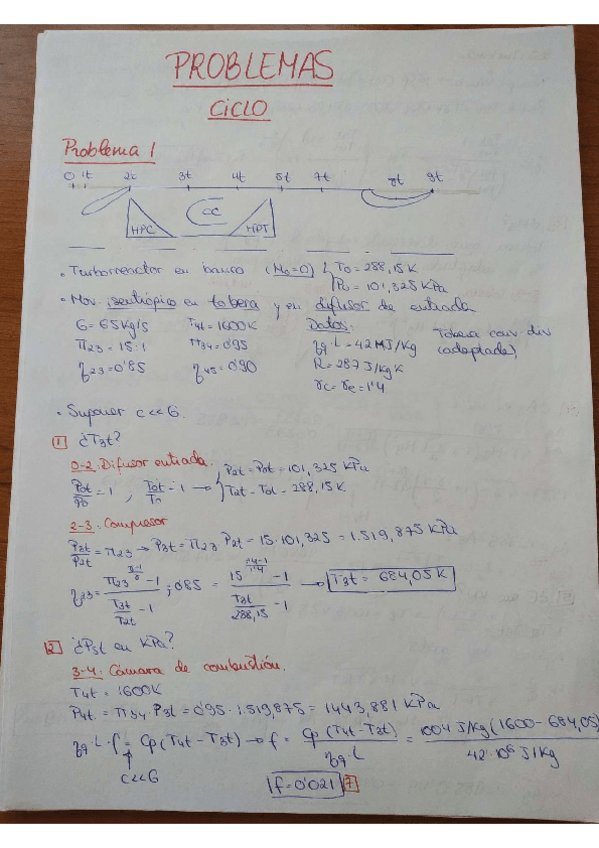 PROBLEMAS
CICLO
Problema 1
0 1t 2t 3t 4t 5t 7t 8t 9t
HPC CC HPT
• Turborreactor en banco (M₀=0) { T₀ = 288,15 K
P₀ = 101,325 KPa
• Mov. isentrópico en tobera y en difusor de entrada
G = 65 Kg/s T4t = 1600K Datos:
π23 = 15:1 π34 = 0'95 ηq·L = 42 MJ/Kg Tobera conv-div
η23 = 0'85 η45 = 0'90 R = 287 J/KgK (adaptada)
γc = γe = 1'4
• Suponer c<<G.
1 ¿T3t?
0-2. Difusor entrada.
P2t/P0 = 1 , T2t/T0 = 1 → { P2t = P0t = 101,325 KPa
T2t = T0t = 288,15 K
2-3: Compresor
P3t/P2t = π23 → P3t = π23 · P2t = 15 · 101,325 = 1.519,875 KPa
η23 = (π23^((γ-1)/γ) - 1) / (T3t/T2t - 1) ; 0'85 = (15^((1'4-1)/1'4) - 1) / (T3t/288,15 - 1) → T3t = 684,05 K
2 ¿P5t en KPa?
3-4: Cámara de combustión.
T4t = 1600K
P4t = π34 · P3t = 0'95 · 1.519,875 = 1443,881 KPa
ηq·L·f = Cp (T4t - T3t) → f = Cp (T4t - T3t) / ηq·L = 1004 J/Kg (1600 - 684,05) / 42·10⁶ J/Kg
c<<G
f = 0'021 7